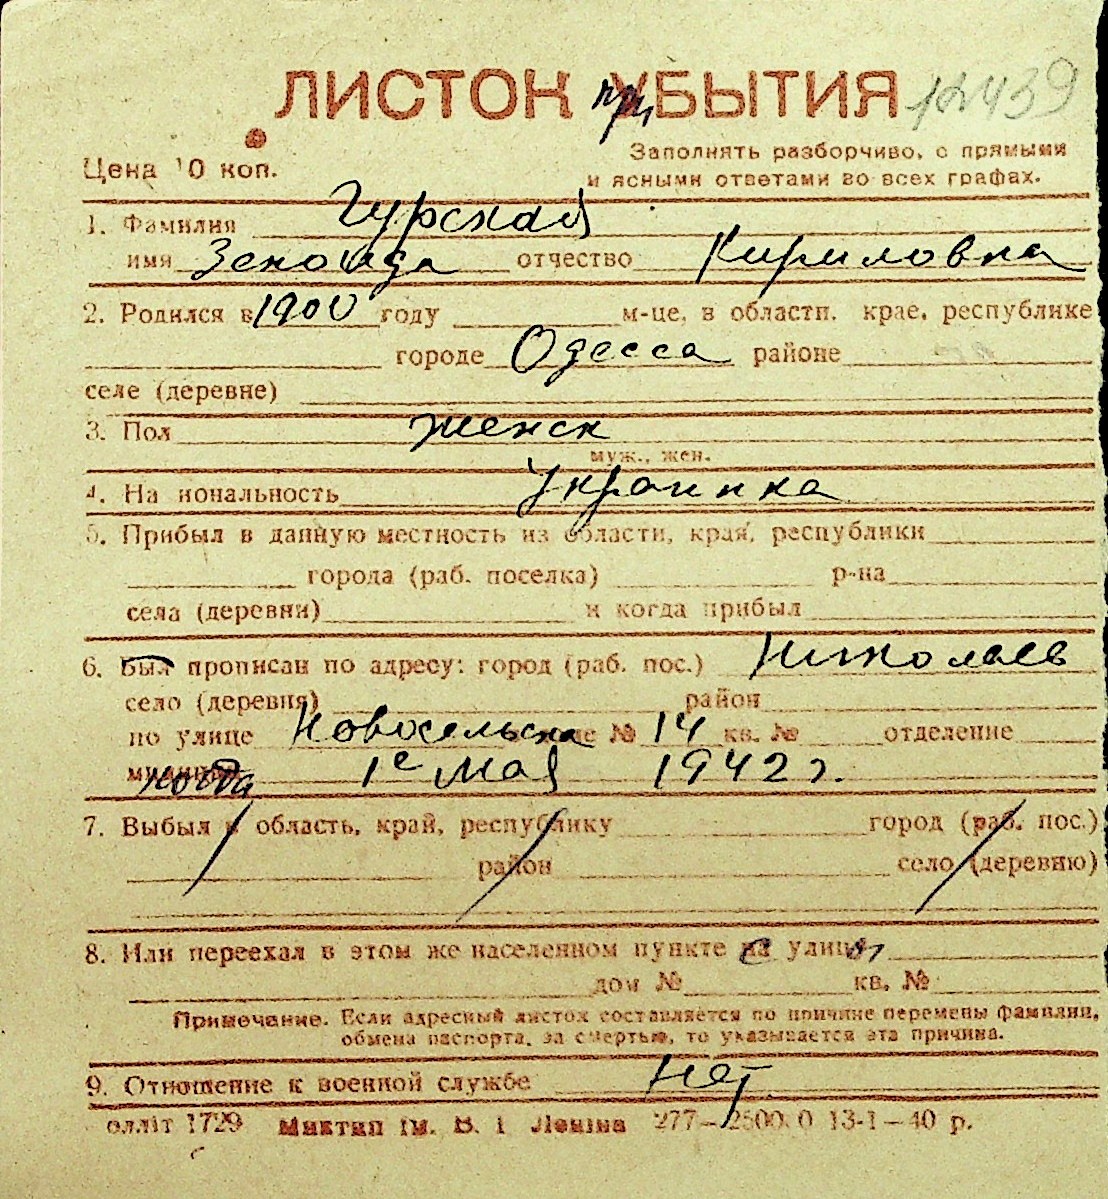 ЛИСТОК при БЫТИЯ 12439
Цена 10 коп.
Заполнять разборчиво, с прямыми
и ясными ответами во всех графах.
1. Фамилия Гурская
имя Зеноида отчество Кириловна
2. Родился в 1900 году м-це, в области, крае, республике
городе Одесса районе
селе (деревне)
3. Пол женск
муж., жен.
4. На иональность Украинка
5. Прибыл в данную местность из области, края, республики
города (раб. поселка) р-на
села (деревни) и когда прибыл
6. Был прописан по адресу: город (раб. пос.) Николаев
село (деревня) район
по улице Новосельска № 14 кв. № отделение
милиции когда 1е мая 1942 г.
7. Выбыл в область, край, республику город (раб. пос.)
район село (деревню)
8. Или переехал в этом же населенном пункте с улицы
дом № кв. №
Примечание. Если адресный листок составляется по причине перемены фамилии,
обмена паспорта, за смертью, то указывается эта причина.
9. Отношение к военной службе Нет
олліт 1729 Миктип ім. В. І Леніна 277—2500.0 13-1-40 р.